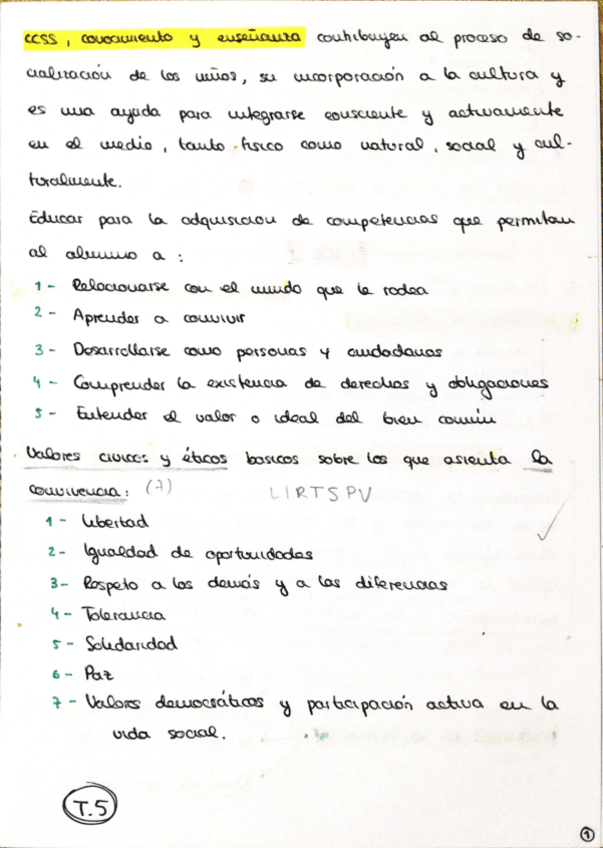 CCSS, conocimiento y enseñanza contribuyen al proceso de so-
cialización de los niños, su incorporación a la cultura y
es una ayuda para integrarse consciente y activamente
en el medio, tanto físico como natural, social y cul-
turalmente.
Educar para la adquisición de competencias que permitan
al alumno a :
1 - Relacionarse con el mundo que le rodea
2 - Aprender a convivir
3 - Desarrollarse como personas y ciudadanos
4 - Comprender la existencia de derechos y obligaciones
5 - Entender el valor o ideal del bien común
Valores cívicos y éticos basicos sobre los que asienta la
convivencia: (7) LIRTSPV
1 - Libertad
2 - Igualdad de oportunidades
3 - Respeto a los demás y a las diferencias
4 - Tolerancia
5 - Solidaridad
6 - Paz
7 - Valores democráticos y participación activa en la
vida social.
T.5
1